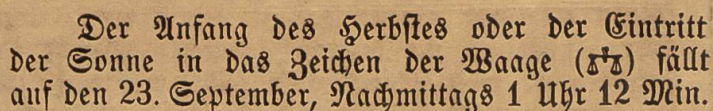 Der Anfang des Herbſtes oder der Eintritt
der Sonne in das Zeichen der Waage (♎) fällt
auf den 23. September, Nachmittags 1 Uhr 12 Min.